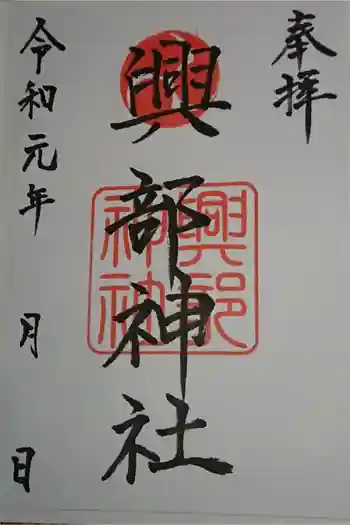 奉拝
興部神社
興部
神社
令和元年 月 日